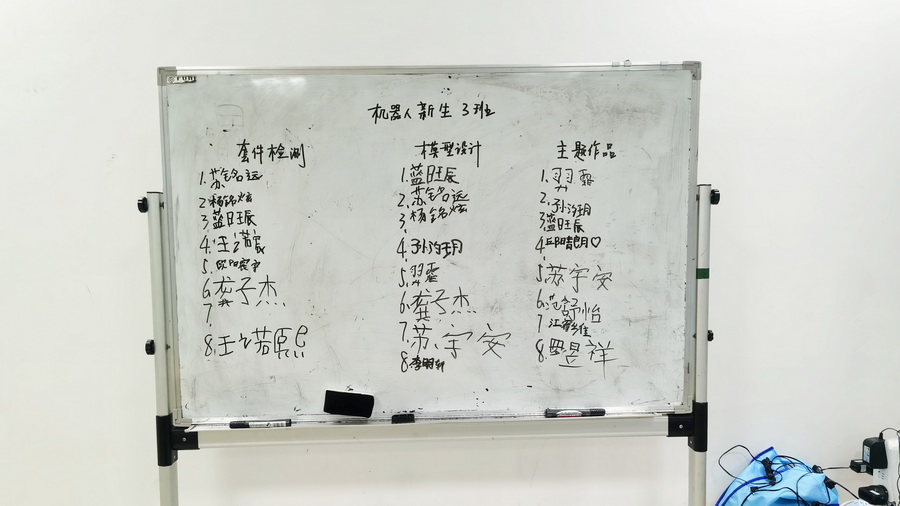 机器人新生3班
套件检测
1.苏铭远
2杨铭炫
3.蓝旺辰
4.王
5.
6.龚子杰
7
8.王诺熙
模型设计
1.蓝旺辰
2.苏铭远
3.杨铭炫
4.孙汐玥
5.羽霏
6.龚子杰
7.苏宇安
8.李明轩
主题作品
1.羽霏
2.孙汐玥
3.蓝旺辰
4.晴朗♡
5.苏宇安
6.范舒怡
7江
8.昱祥